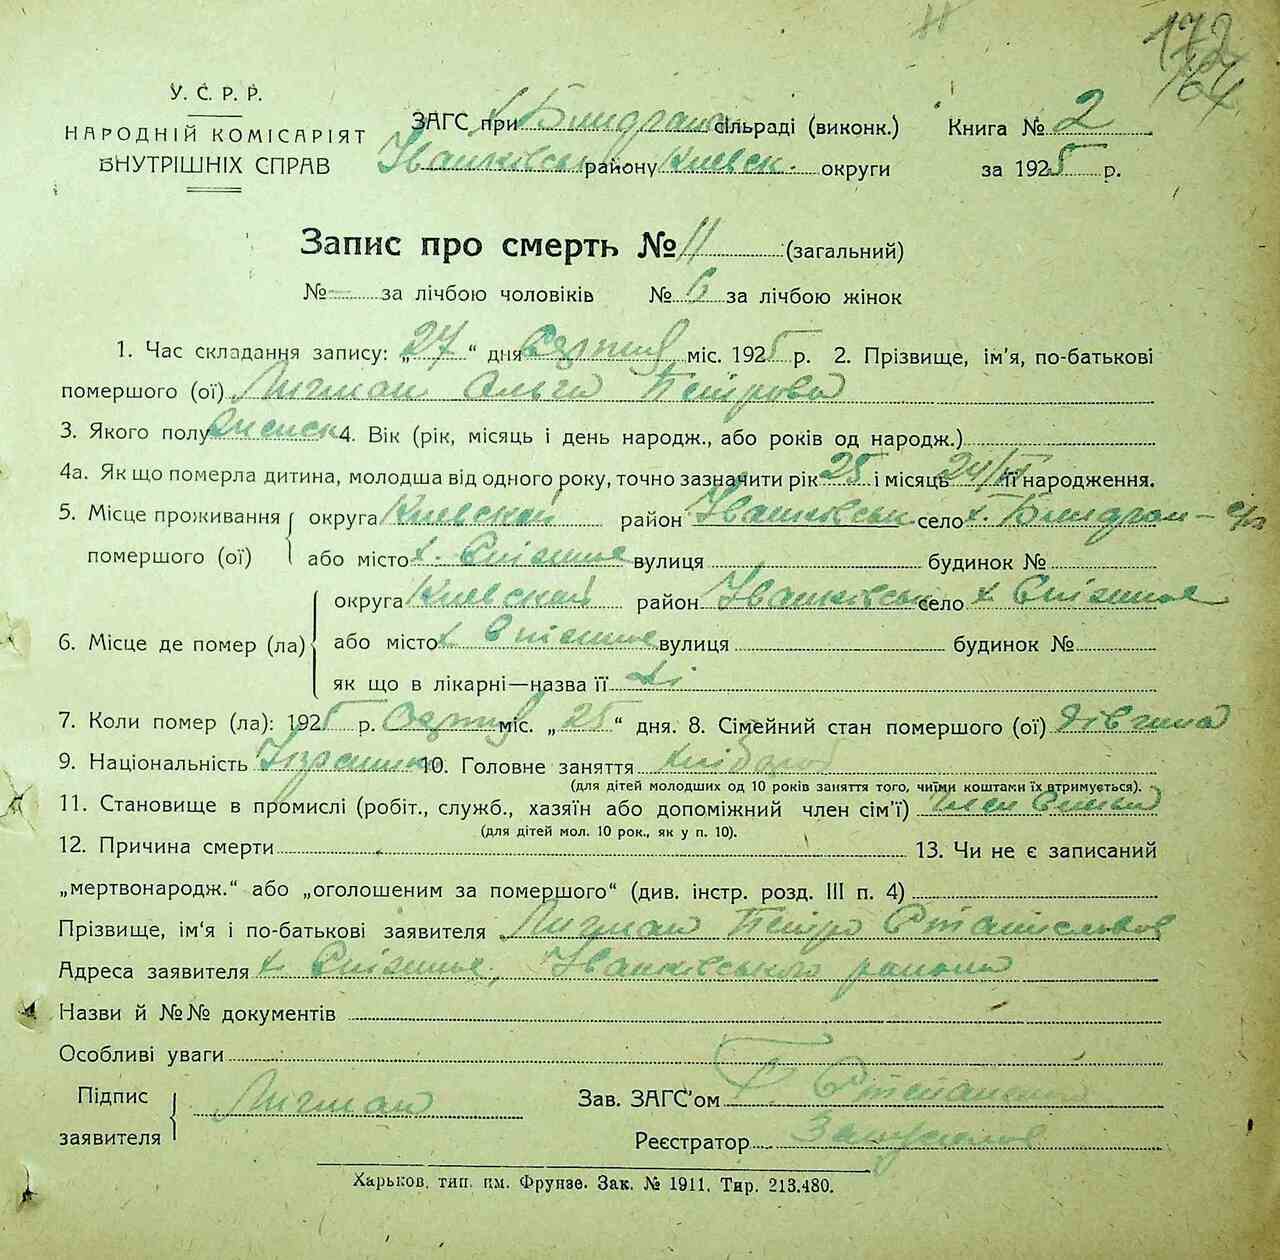 172
64
У. С. Р. Р.
НАРОДНІЙ КОМІСАРІЯТ
ВНУТРІШНІХ СПРАВ
ЗАГС при сільраді (виконк.)
Іванківськ району Киевск. округи
Книга № 2
за 1925 р.
Запис про смерть № 11 (загальний)
№ — за лічбою чоловіків № 6 за лічбою жінок
1. Час складання запису: „27“ дня міс. 1925 р. 2. Прізвище, ім'я, по-батькові
помершого (ої) Личман Ольга Петрова
3. Якого полу 4. Вік (рік, місяць і день народж., або років од народж.)
4а. Як що померла дитина, молодша від одного року, точно зазначити рік 25 і місяць її народження.
5. Місце проживання помершого (ої) округа Киевской район Іванківськ село х.
або місто х. вулиця будинок №
6. Місце де помер (ла) округа Киевской район Іванківськ село х
або місто х вулиця будинок №
як що в лікарні—назва її
7. Коли помер (ла): 1925 р. міс. „25“ дня. 8. Сімейний стан помершого (ої) дівчина
9. Національність 10. Головне заняття хлібороб
(для дітей молодших од 10 років заняття того, чиїми коштами їх втримується).
11. Становище в промислі (робіт., служб., хазяїн або допоміжний член сім'ї) член
(для дітей мол. 10 рок., як у п. 10).
12. Причина смерти 13. Чи не є записаний
„мертвонародж.“ або „оголошеним за помершого“ (див. інстр. розд. III п. 4)
Прізвище, ім'я і по-батькові заявителя Личман Петро
Адреса заявителя х Іванківського района
Назви й №№ документів
Особливі уваги
Підпис заявителя Личман
Зав. ЗАГС'ом
Реєстратор
Харьков, тип. им. Фрунзе. Зак. № 1911. Тир. 213.480.